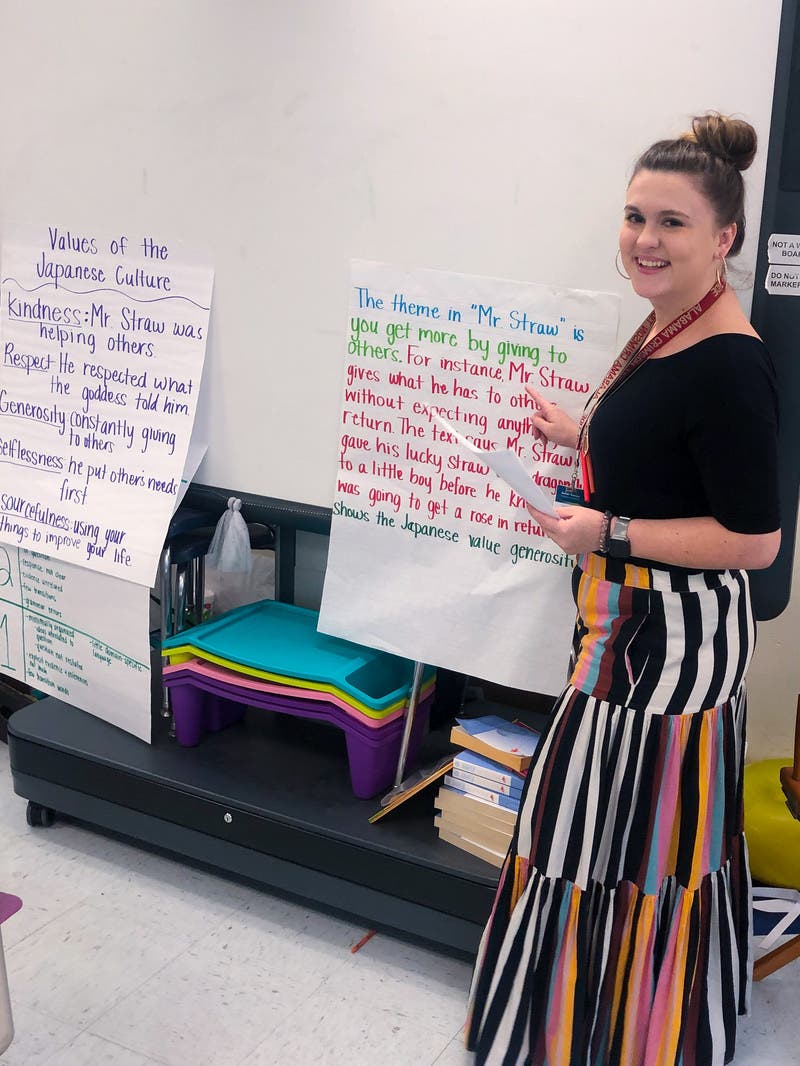 Values of the
Japanese Culture
Kindness: Mr. Straw was
helping others.
Respect: He respected what
the goddess told him
Generosity: constantly giving
to others
selflessness: he put others needs
first
sourcefulness: using your
things to improve your life
The theme in "Mr. Straw" is
you get more by giving to
others. For instance, Mr. Straw
gives what he has to oth
without expecting anyth
return. The text says Mr. Straw
gave his lucky straw dragonfly
to a little boy before he kn
was going to get a rose in retu
shows the Japanese value generosit
2
question
response not clear
evidence unrelated
few transitions
grammar errors
1
minimally organized
question
question not restated
few transition words
language
ALABAMA CRIM
NOT A W
BOA
DO NOT
MARKER